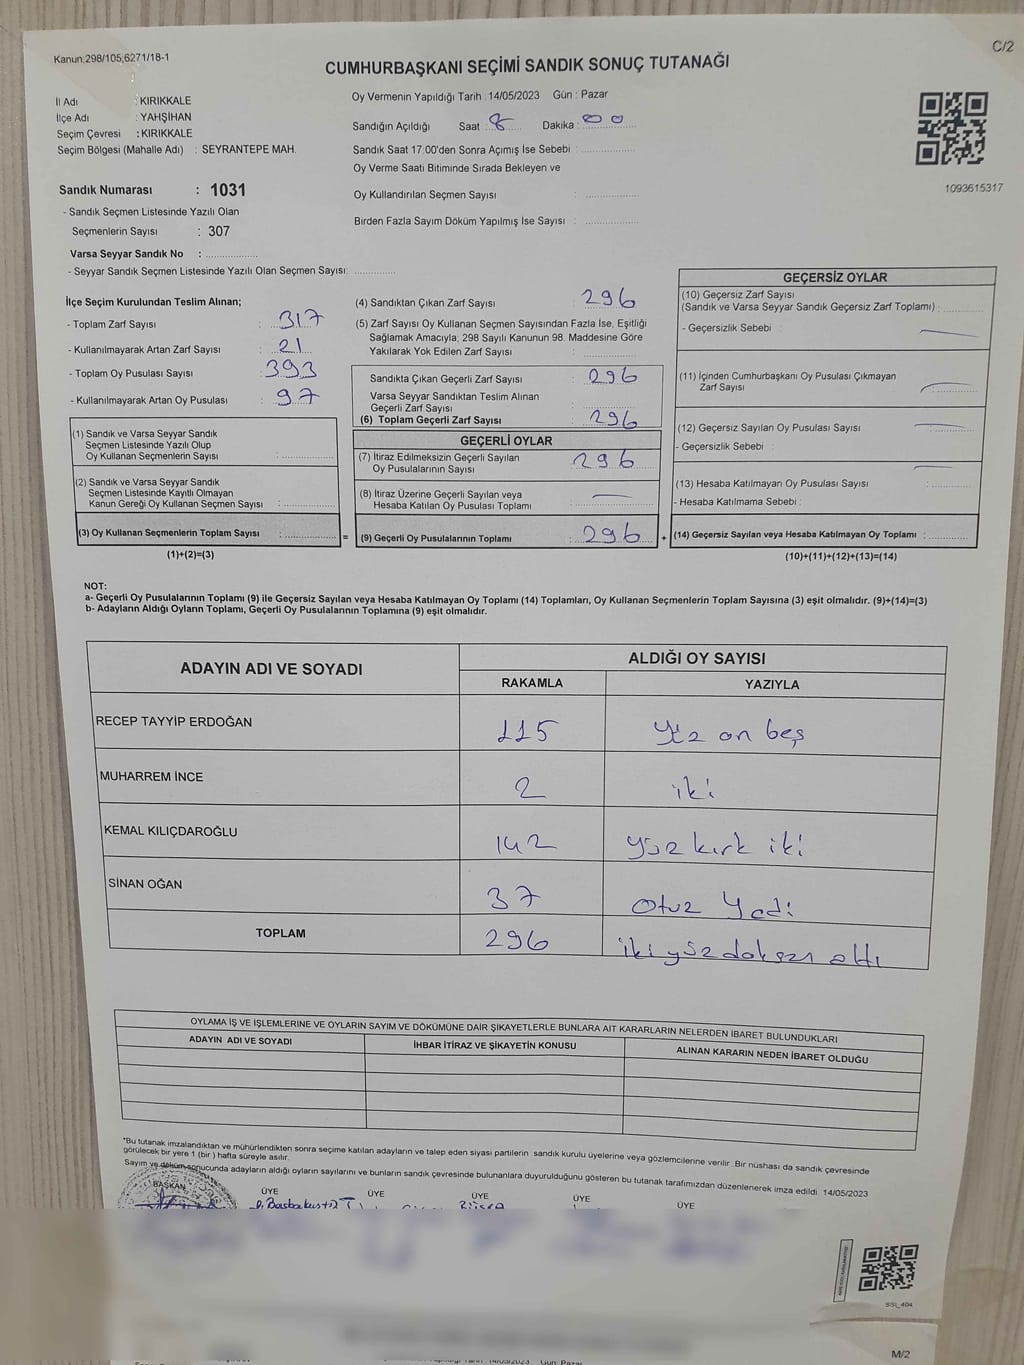 Kanun:298/105;6271/18-1
C/2
CUMHURBAŞKANI SEÇİMİ SANDIK SONUÇ TUTANAĞI
İl Adı : KIRIKKALE
İlçe Adı : YAHŞİHAN
Seçim Çevresi : KIRIKKALE
Seçim Bölgesi (Mahalle Adı) : SEYRANTEPE MAH.
Oy Vermenin Yapıldığı Tarih :14/05/2023 Gün : Pazar
Sandığın Açıldığı Saat : 8 Dakika : 00
Sandık Saat 17:00'den Sonra Açımış İse Sebebi :
Oy Verme Saati Bitiminde Sırada Bekleyen ve
Oy Kullandırılan Seçmen Sayısı :
Birden Fazla Sayım Döküm Yapılmış İse Sayısı :
1093615317
Sandık Numarası : 1031
- Sandık Seçmen Listesinde Yazılı Olan
Seçmenlerin Sayısı : 307
Varsa Seyyar Sandık No :
- Seyyar Sandık Seçmen Listesinde Yazılı Olan Seçmen Sayısı:
İlçe Seçim Kurulundan Teslim Alınan;
- Toplam Zarf Sayısı : 317
- Kullanılmayarak Artan Zarf Sayısı : 21
- Toplam Oy Pusulası Sayısı : 393
- Kullanılmayarak Artan Oy Pusulası : 97
(1) Sandık ve Varsa Seyyar Sandık
Seçmen Listesinde Yazılı Olup
Oy Kullanan Seçmenlerin Sayısı :
(2) Sandık ve Varsa Seyyar Sandık
Seçmen Listesinde Kayıtlı Olmayan
Kanun Gereği Oy Kullanan Seçmen Sayısı :
(3) Oy Kullanan Seçmenlerin Toplam Sayısı : =
(1)+(2)=(3)
(4) Sandıktan Çıkan Zarf Sayısı : 296
(5) Zarf Sayısı Oy Kullanan Seçmen Sayısından Fazla İse, Eşitliği
Sağlamak Amacıyla; 298 Sayılı Kanunun 98. Maddesine Göre
Yakılarak Yok Edilen Zarf Sayısı :
Sandıkta Çıkan Geçerli Zarf Sayısı : 296
Varsa Seyyar Sandıktan Teslim Alınan
Geçerli Zarf Sayısı :
(6) Toplam Geçerli Zarf Sayısı : 296
GEÇERLİ OYLAR
(7) İtiraz Edilmeksizin Geçerli Sayılan
Oy Pusulalarının Sayısı : 296
(8) İtiraz Üzerine Geçerli Sayılan veya
Hesaba Katılan Oy Pusulası Toplamı : —
(9) Geçerli Oy Pusulalarının Toplamı : 296 +
GEÇERSİZ OYLAR
(10) Geçersiz Zarf Sayısı
(Sandık ve Varsa Seyyar Sandık Geçersiz Zarf Toplamı) :
- Geçersizlik Sebebi : —
(11) İçinden Cumhurbaşkanı Oy Pusulası Çıkmayan
Zarf Sayısı : —
(12) Geçersiz Sayılan Oy Pusulası Sayısı : —
- Geçersizlik Sebebi :
(13) Hesaba Katılmayan Oy Pusulası Sayısı : —
- Hesaba Katılmama Sebebi :
(14) Geçersiz Sayılan veya Hesaba Katılmayan Oy Toplamı :
(10)+(11)+(12)+(13)=(14)
NOT:
a- Geçerli Oy Pusulalarının Toplamı (9) ile Geçersiz Sayılan veya Hesaba Katılmayan Oy Toplamı (14) Toplamları, Oy Kullanan Seçmenlerin Toplam Sayısına (3) eşit olmalıdır. (9)+(14)=(3)
b- Adayların Aldığı Oyların Toplamı, Geçerli Oy Pusulalarının Toplamına (9) eşit olmalıdır.
ADAYIN ADI VE SOYADI ALDIĞI OY SAYISI
RAKAMLA YAZIYLA
RECEP TAYYİP ERDOĞAN 115 Yüz on beş
MUHARREM İNCE 2 iki
KEMAL KILIÇDAROĞLU 142 yüz kırk iki
SİNAN OĞAN 37 Otuz Yedi
TOPLAM 296 iki yüz doksan altı
OYLAMA İŞ VE İŞLEMLERİNE VE OYLARIN SAYIM VE DÖKÜMÜNE DAİR ŞİKAYETLERLE BUNLARA AİT KARARLARIN NELERDEN İBARET BULUNDUKLARI
ADAYIN ADI VE SOYADI İHBAR İTİRAZ VE ŞİKAYETİN KONUSU ALINAN KARARIN NEDEN İBARET OLDUĞU
*Bu tutanak imzalandıktan ve mühürlendikten sonra seçime katılan adayların ve talep eden siyasi partilerin sandık kurulu üyelerine veya gözlemcilerine verilir .Bir nüshası da sandık çevresinde
görülecek bir yere 1 (bir ) hafta süreyle asılır.
Sayım ve döküm sonucunda adayların aldığı oyların sayılarını ve bunların sandık çevresinde bulunanlara duyurulduğunu gösteren bu tutanak tarafımızdan düzenlenerek imza edildi. 14/05/2023
BAŞKAN ÜYE ÜYE ÜYE ÜYE ÜYE
Büşra
SSI_404
M/2
14/05/2023 Gün Pazar